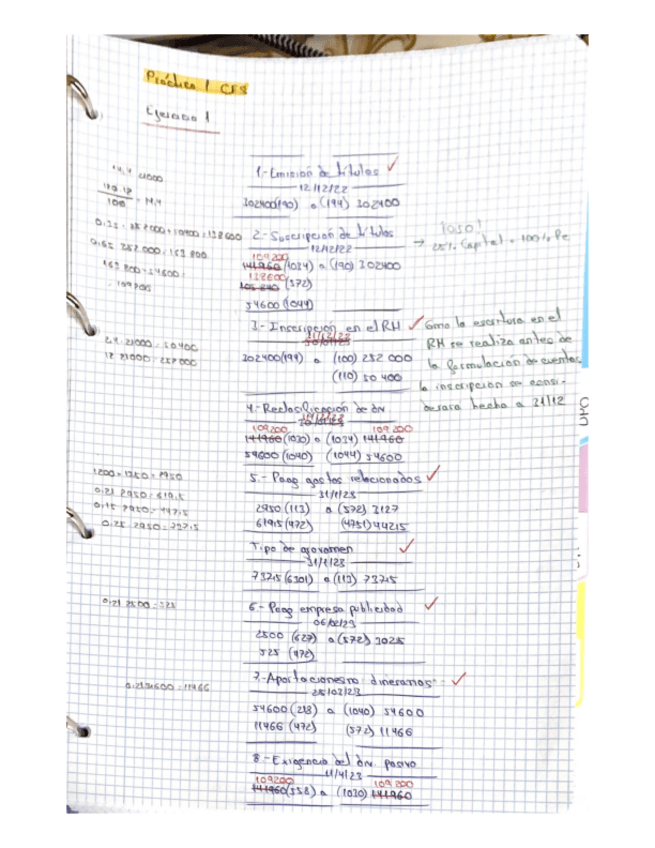 Práctica 1 CES
Ejercicio 1
1.- Emisión de títulos ✓
12/12/22
302400(190) a (194) 302400
14,4 21000
120.12
100 = 14,4
0,25 · 252000 + 50400 = 113400
0,65 252.000 = 163 800
163 800 - 54600 =
= 109200
2.- Suscripción de títulos
12/12/22
109200
141960 (1034) a (190) 302400
138600
105 840 (572)
54600 (1044)
→ ¡OJO!
25% Capital + 100% Pe
3.- Inscripción en el RM ✓
31/12/22
30/01/23
302400(194) a (100) 252 000
(110) 50 400
2,4 · 21000 = 50400
12 · 21000 = 252000
Como la escritura en el
RM se realiza antes de
la formulación de cuentas
la inscripción se consi-
derará hecha a 31/12
4.- Reclasificación de div
109200 109 200
141960 (1030) a (1034) 141960
54600 (1040) (1044) 54600
5.- Pago gastos relacionados ✓
31/1/23
2950 (113) a (572) 3127
619,5 (472) (4751) 442,5
1200 + 1750 = 2950
0,21 · 2950 = 619,5
0,15 · 2950 = 442,5
0,25 · 2950 = 737,5
Tipo de gravamen ✓
31/1/23
737,5 (6301) a (113) 737,5
6.- Pago empresa publicidad ✓
06/02/23
2500 (627) a (572) 3025
525 (472)
0,21 · 2500 = 525
7.- Aportaciones no dinerarias ✓
25/03/23
54600 (213) a (1040) 54600
11466 (472) (572) 11466
0,21 · 54600 = 11466
8.- Exigencia del div. pasivo
11/4/23
109200 109 200
141960 (558) a (1030) 141960